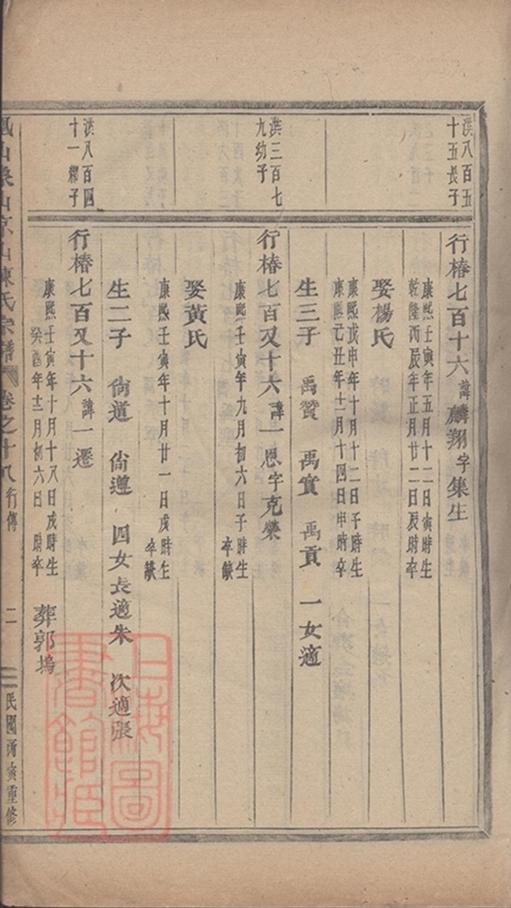 洪八百五
十五長子
行椿七百十六諱麟翔字集生
康熙壬寅年五月十二日寅時生
乾隆丙辰年正月廿二日辰時卒
娶楊氏
康熙戊申年十月十二日子時生
康熙己丑年十二月十四日申時卒
生三子 禹贊 禹實 禹貢 一女適
洪三百七
九幼子
行椿七百又十六諱一恩字克榮
康熙壬寅年九月初六日子時生
卒缺
娶黃氏
康熙壬寅年十月廿一日戌時生
卒缺
生二子 尙道 尙遵 四女長適朱 次適張
洪八百四
十一繼子
行椿七百又十六諱一遷
康熙壬寅年十月十八日戌時生
癸酉年十二月初六日 時卒
葬郭塢
山陳氏宗譜
卷之十八行傳
二
民國丙寅重修
上海圖
書館藏